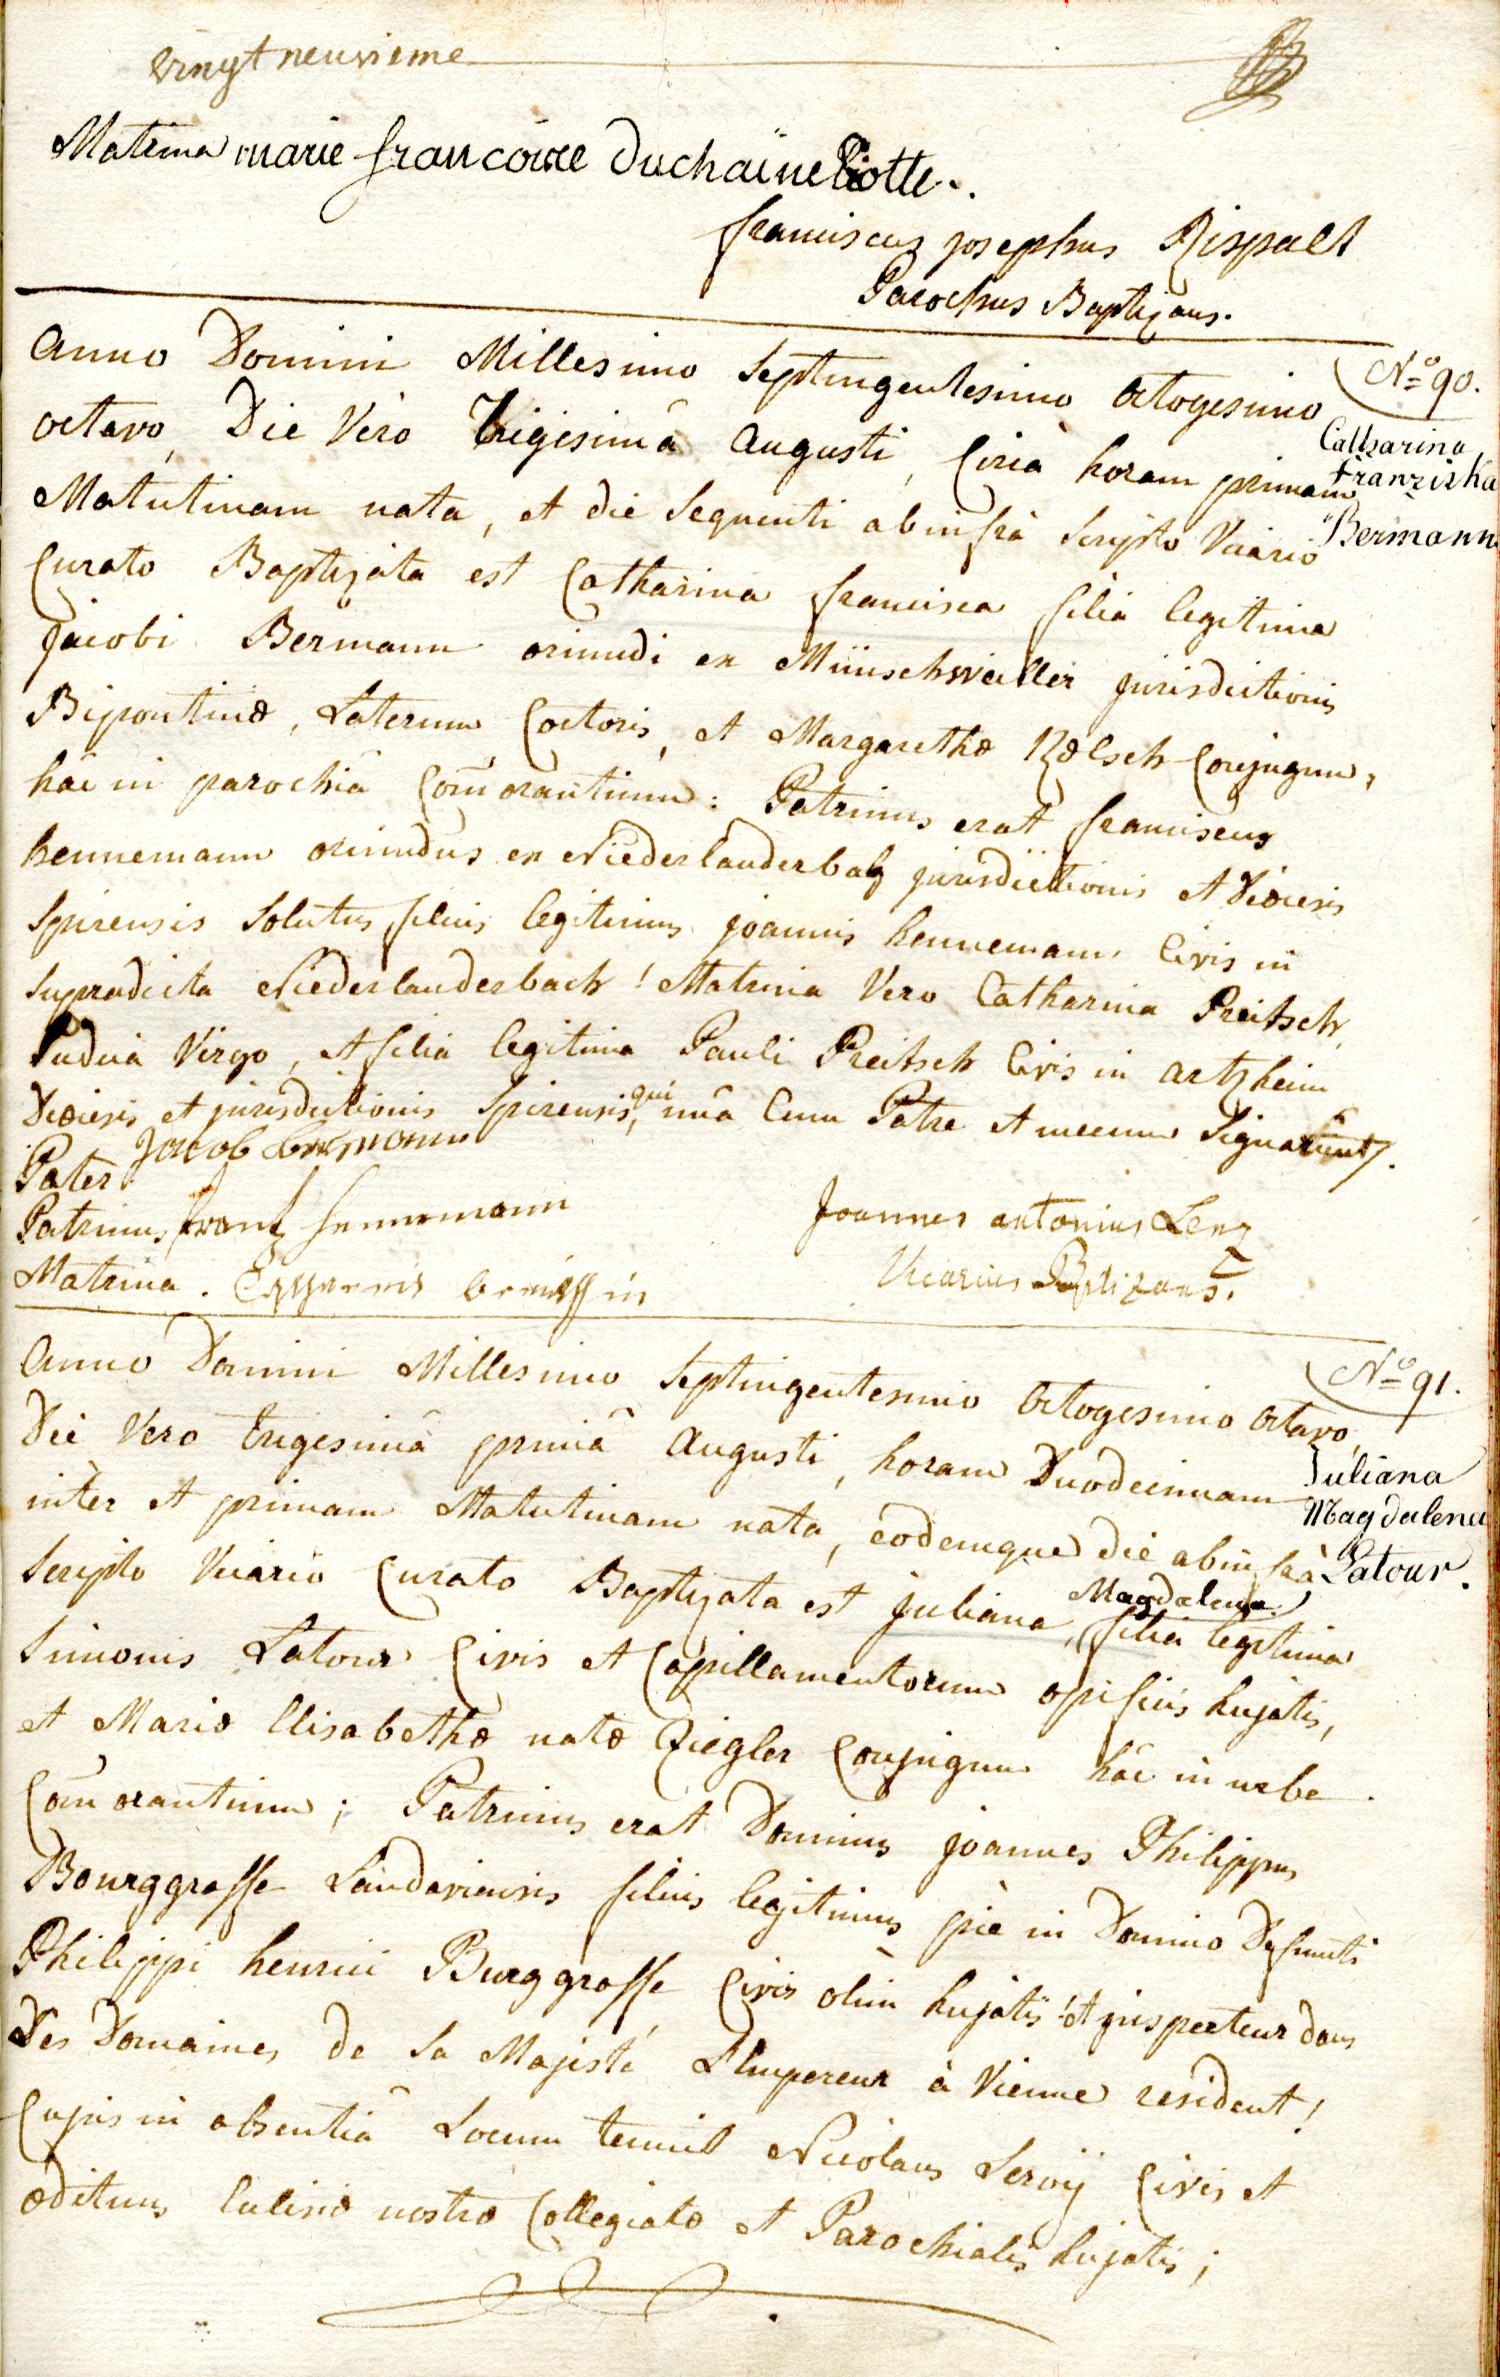 vingt neuvieme
Matrina marie francoise Duchaine Piotte.
franciscus josephus Rispalt
Parochus Baptizans.
Anno Domini Millesimo Septingentesimo octogesimo
N.º 90.
octavo, Die Vero Trigesimâ Augusti, Circà horam primam
Catharina
Franziska
Bermann
Matutinam nata, et die Sequenti ab infrà Scripto Vicario
Curato Baptizata est Catharina francisca filia legitima
Jacobi Bermann oriundi ex Münschweiller jurisdictionis
Bipontinæ, Laterum Coctoris, et Margarethæ Rœlsch Conjugum,
hâc in parochiâ Com̄orantium: Patrinus erat franciscus
hennemann oriundus ex Niederlauderbach jurisdictionis et Diœcesis
Spirensis Solutus, filius legitimus joannis hennemann Civis in
Supradicta Niederlauderbach! Matrina Vero Catharina Preitsch,
Pudica Virgo, et filia legitima Pauli Preitsch Civis in Artzheim
Diœcesis et jurisdictionis Spirensis, qui unâ Cum Patre et mecum Signarunt.
Pater Jacob bermann
Patrinus frantz hennemann
Joannes antonius Lenz
Matrina.
Vicarius Baptizans.
Anno Domini Millesimo Septingentesimo Octogesimo Octavo,
N.º 91.
Die Vero trigesimâ primâ Augusti, horam Duodecimam
Juliana
Magdalena
Latour.
inter et primam Matutinam nata, eodemque die ab infrà
Scripto Vicario Curato Baptizata est juliana, Magdalena filia legitima
Simonis Latour Civis et Capillamentorum opificis hujatis,
et Mariæ Elisabethæ natæ Ziegler Conjugum hâc in urbe
Com̄orantium; Patrinus erat Dominus joannes Philippus
Bourggraffe Landaviensis filius legitimus piè in Domino Defuncti
Philippi henrici Burggraffe Civis olim hujatis! et juspecteur dans
Des Domaines de Sa Majesté L'Empereur à Vienne resident!
Cujus in absentiâ Locum tenuit Nicolaus Leroÿ Civis et
ædituus Ecclesiæ nostræ Collegiatæ et Parochialis hujatis;